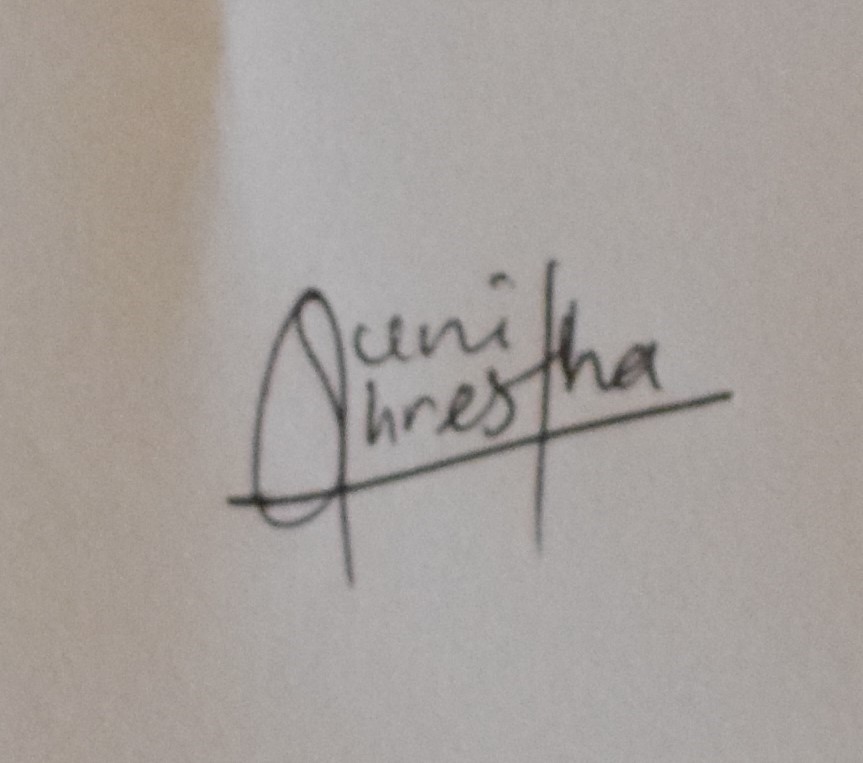 Sunit
Shrestha